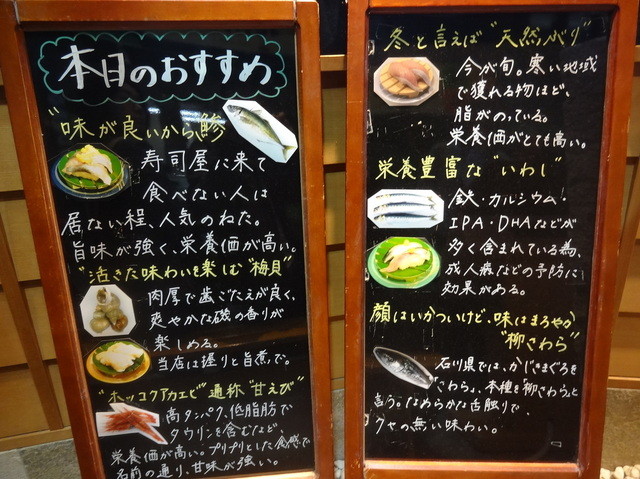 本日のおすすめ
"味が良いから鯵"
寿司屋に来て
食べない人は
居ない程、人気のねた。
旨味が強く、栄養価が高い。
"活きた味わいを楽しむ"梅貝"
肉厚で歯ごたえが良く、
爽やかな磯の香りが
楽しめる。
当店は握りと旨煮で。
"ホッコクアカエビ"通称"甘えび"
高タンパク、低脂肪で
タウリンを含むなど、
栄養価が高い。プリプリとした食感で
名前の通り、甘味が強い。
冬と言えば"天然ぶり"
今が旬。寒い地域
で獲れる物ほど、
脂がのっている。
栄養価がとても高い。
栄養豊富な"いわし"
鉄・カルシウム!
IPA・DHAなどが
多く含まれている為、
成人病などの予防に
効果がある。
顔はいかついけど、味はまろやか
"柳さわら"
石川県では、かじきまぐろを
さわら。本種を「柳さわら」と
言う。なめらかな舌触りで、
クセの無い味わい。